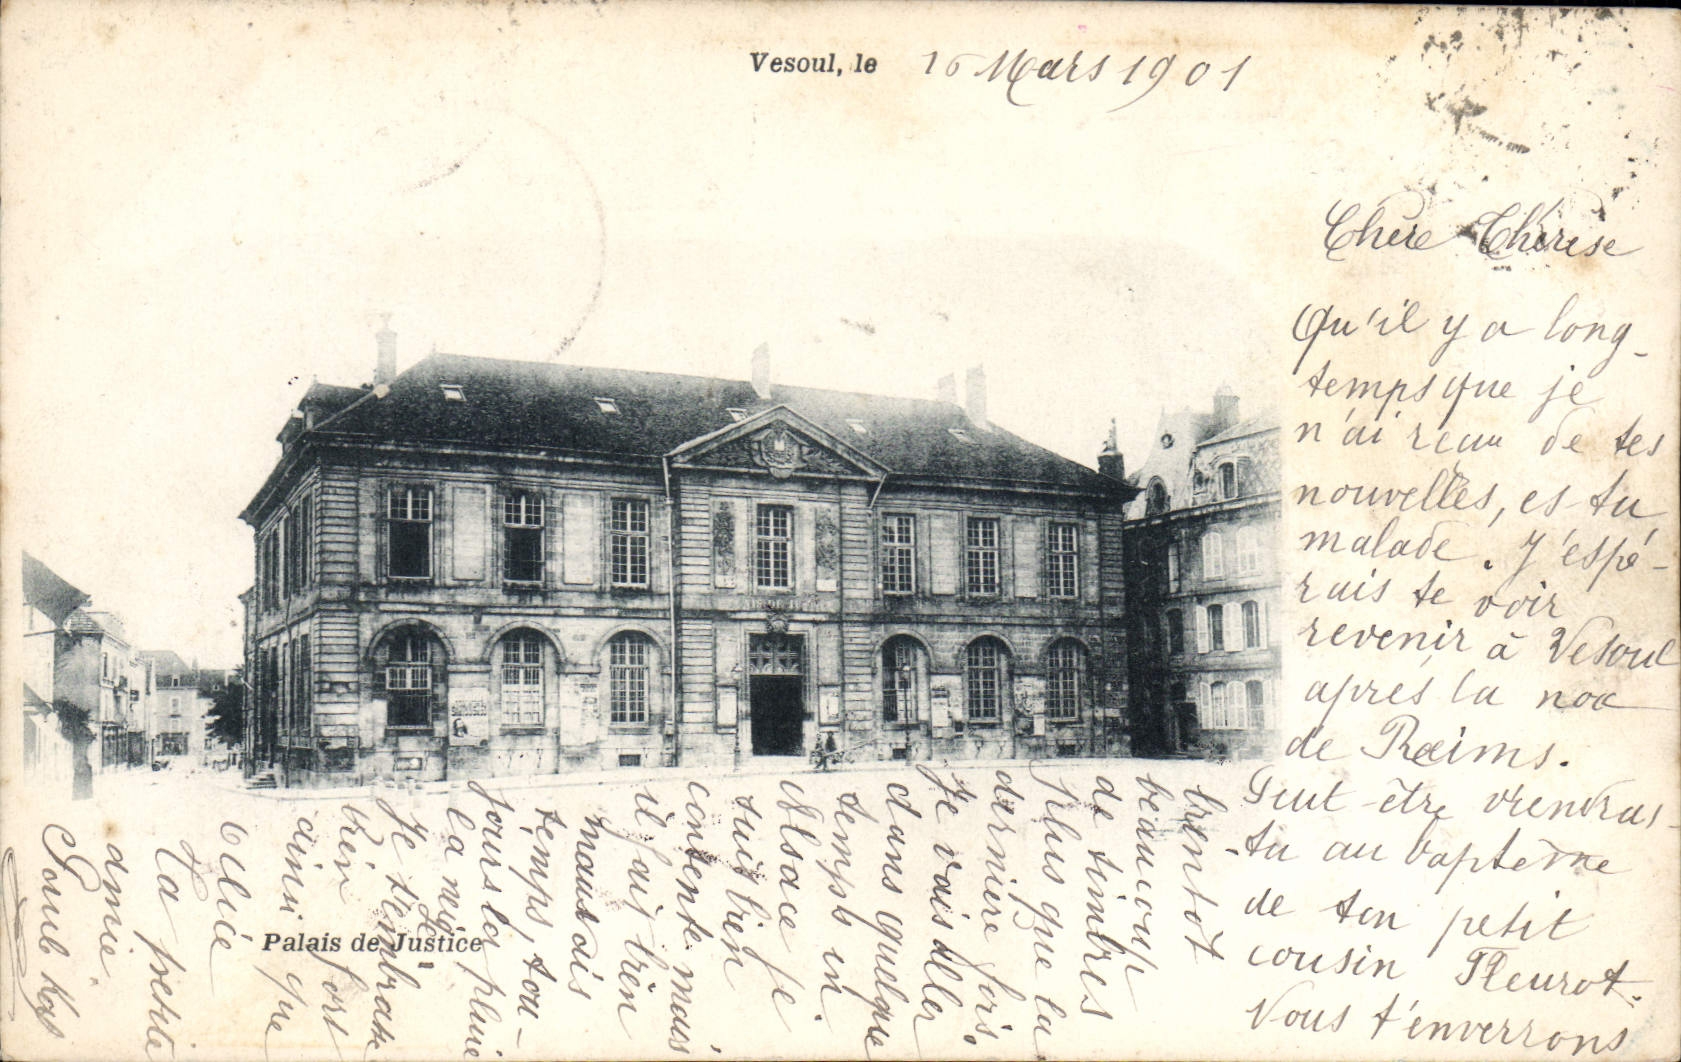 Vesoul, le 16 Mars 1901
Chère Thérèse
Qu'il y a long-
temps que je
n'ai reçu de tes
nouvelles, es-tu
malade. J'espé-
rais te voir
revenir à Vesoul
après la noce
de Reims.
Peut-être viendras-
tu au baptème
de ton petit
cousin Fleurot.
Vous t'enverrons
bientôt
beaucoup
de timbres
plus que la
dernière fois.
Je vais aller
dans quelque
temps en
Alsace je
suis bien
contente mais
il fait bien
mauvais
temps, tou-
jours la pluie
la
Je t'embrasse
bien fort
ainsi que
Alice
Ta petite
amie
Palais de Justice